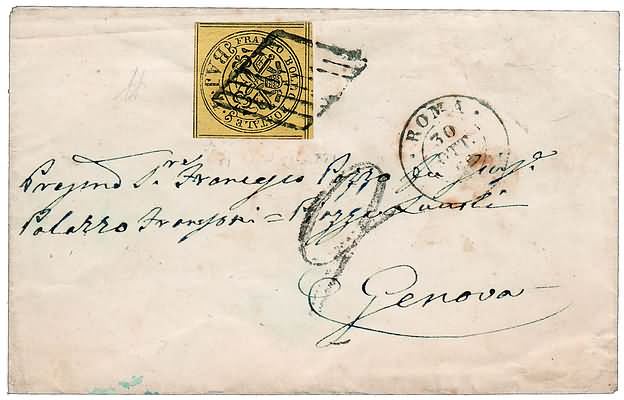 FRANCO BOLLO POSTALE
BAJ 8
ROMA
30
OTT.
Pregmo Sr. Francesco Pozzo
Palazzo = Piazza
Genova